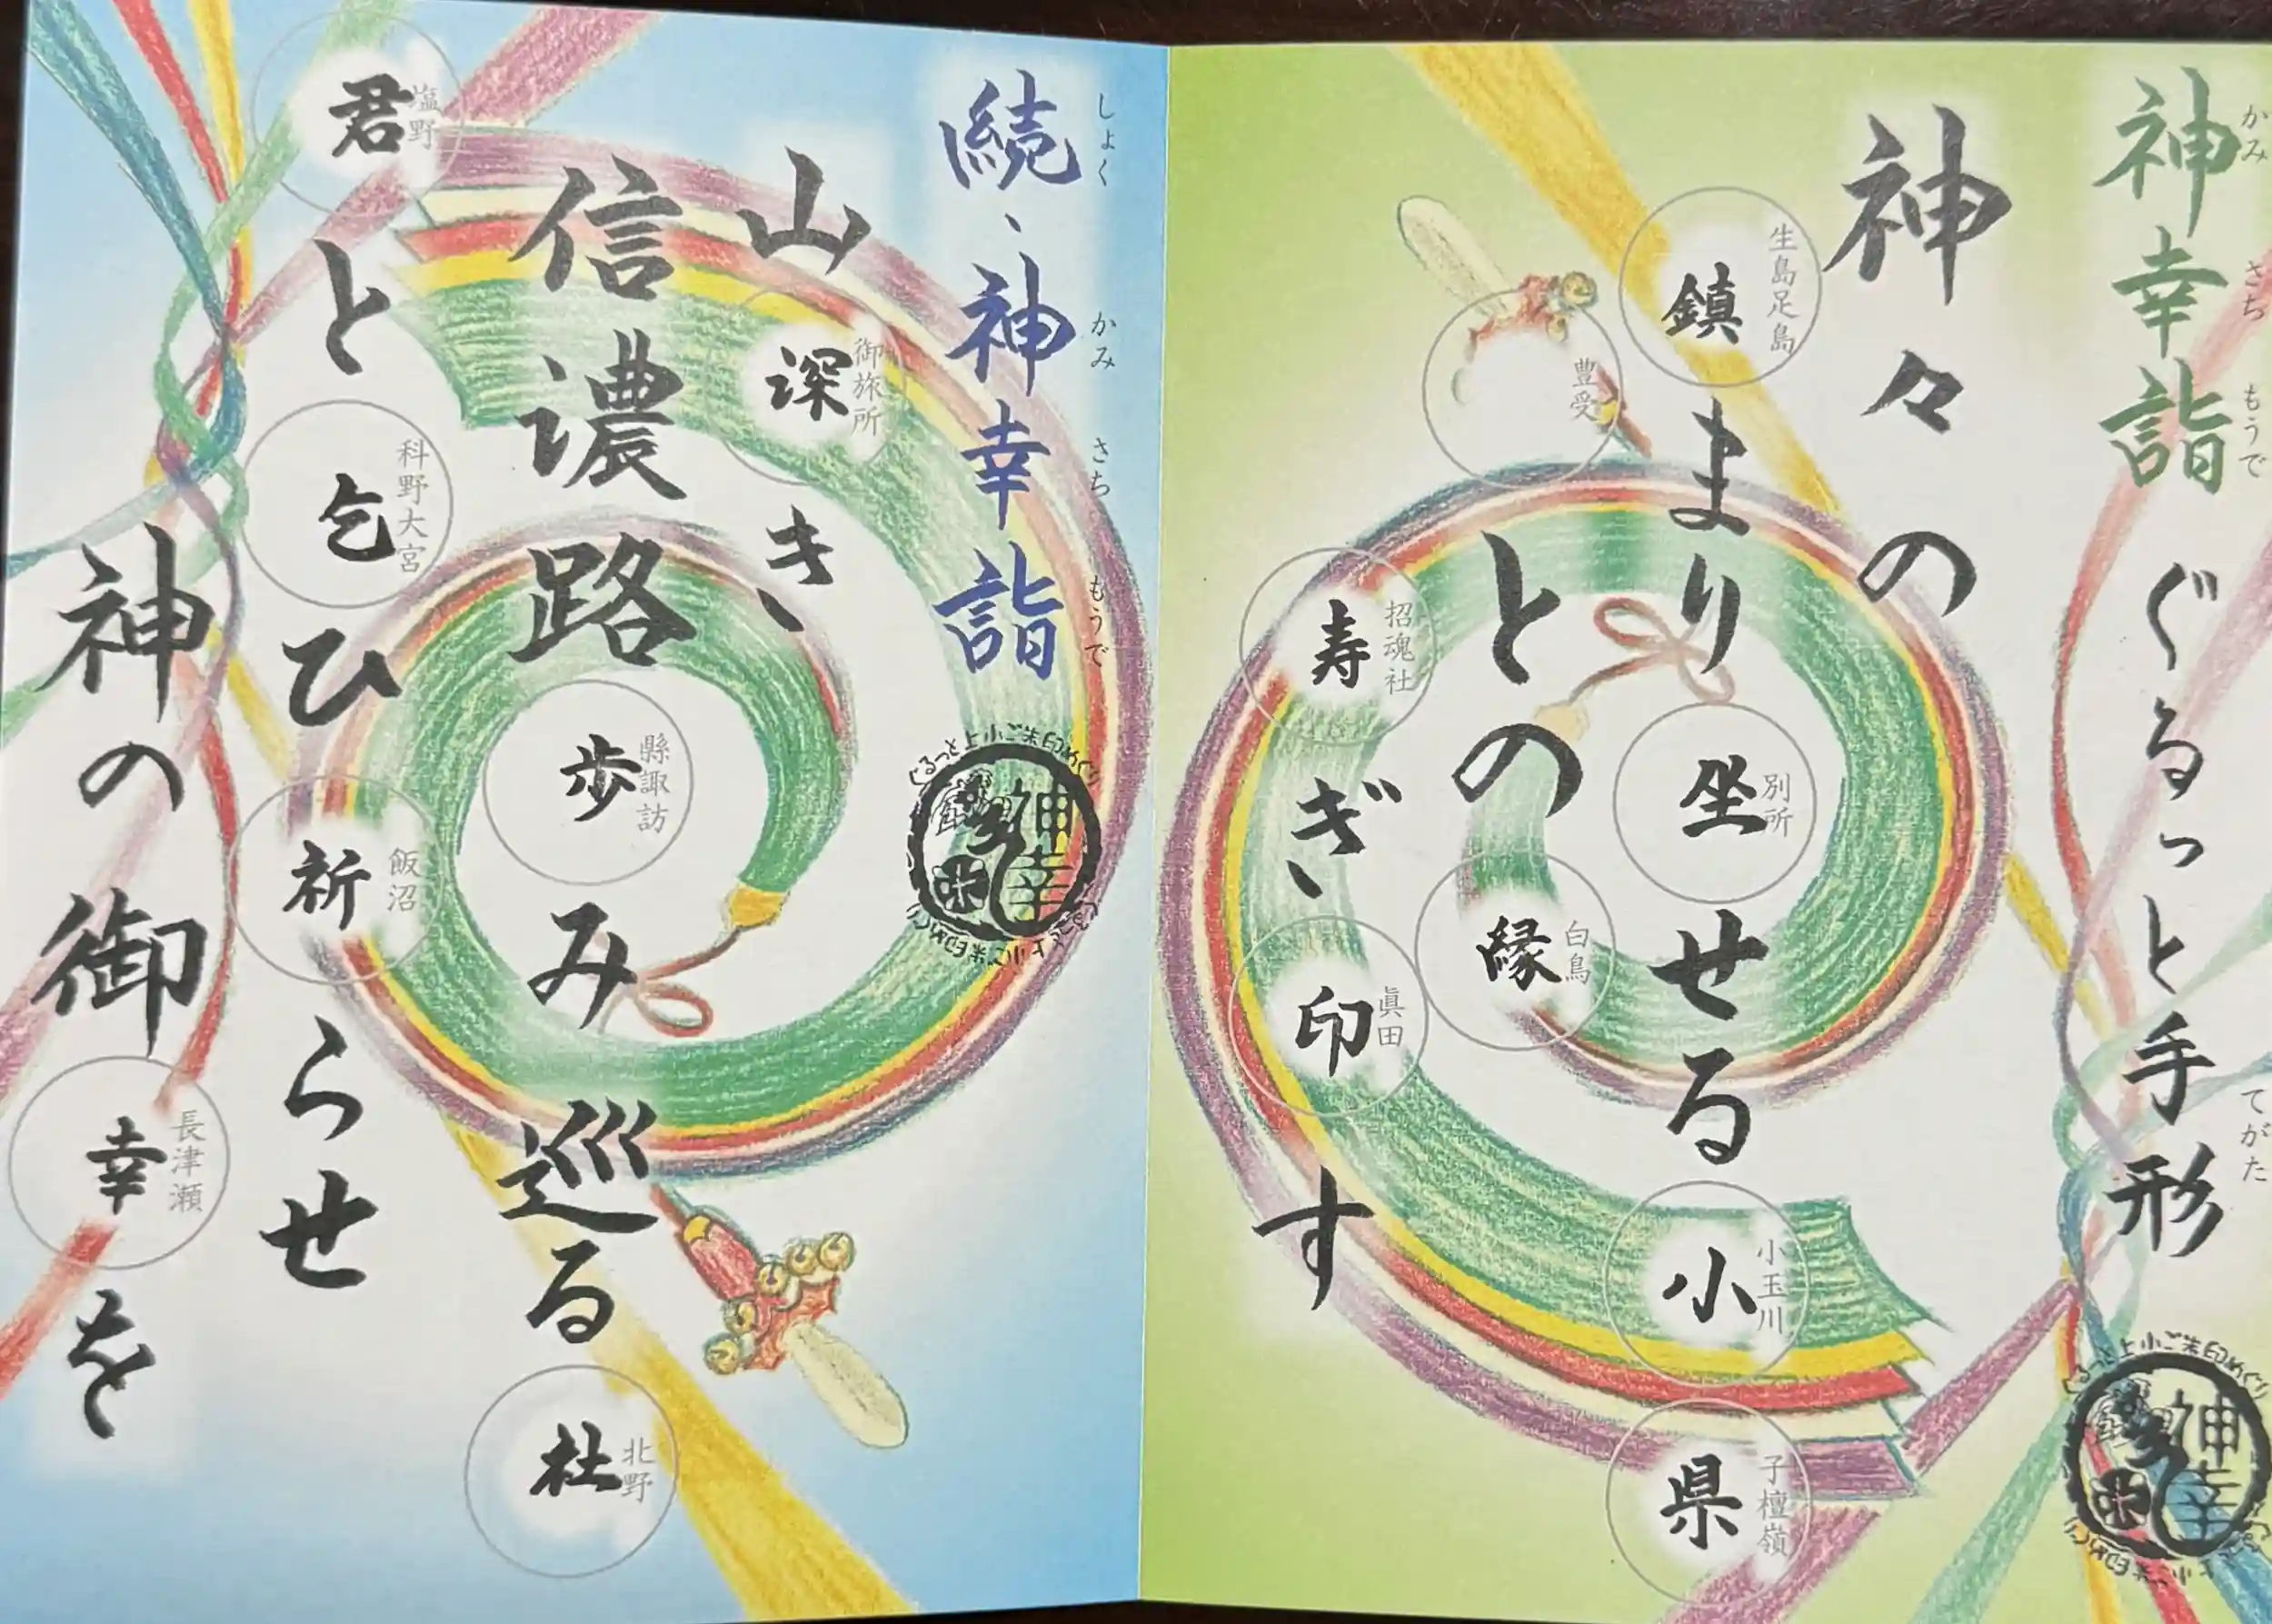 神幸詣 ぐるっと手形
かみ さち もうで てがた
神々の
鎮まり坐せる小県
生島足島 別所 小玉川 子檀嶺
との縁
豊受 白鳥
寿ぎ印す
招魂社 眞田
ぐるっと上小ご朱印めぐり
神幸
続、神幸詣
しょく かみ さち もうで
ぐるっと上小ご朱印めぐり
神幸
山深き、
御旅所
信濃路歩み巡る杜
縣諏訪 北野
君と乞ひ祈らせ
塩野 科野大宮 飯沼
神の御幸を
長津瀬